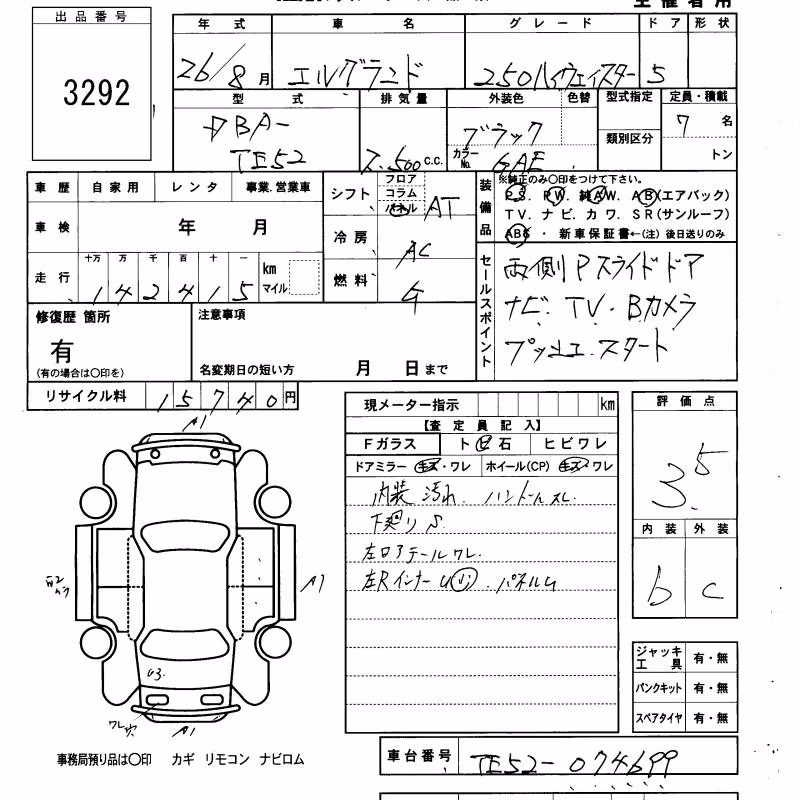 出品番号
3292
年式 車名 グレード ドア 形状
26/8月 エルグランド 250ハイウェイスター 5
型式 排気量 外装色 色替 型式指定 定員・積載
DBA-
TE52
2,500c.c.
ブラック
カラーNo. GAE
類別区分
7名
トン
車歴 自家用 レンタ 事業.営業車
車検 年 月
走行 十万 万 千 百 十 一
142415 km マイル
シフト フロア コラム パネル AT
冷房 AC
燃料 G
装備品
※純正のみ〇印をつけて下さい。
P.S. P.W. 純A.W. A.B(エアバック)
T.V. ナビ. カワ. S R(サンルーフ)
ABS ・ 新車保証書←(注) 後日送りのみ
セールスポイント
両側Pスライドドア
ナビ. TV. Bカメラ
プッシュ.スタート
修復歴 箇所
有
(有の場合は〇印を)
注意事項
名変期日の短い方 月 日まで
リサイクル料 15740円
現メーター指示 km
【査定員記入】
Fガラス トビ石 ヒビワレ
ドアミラー キズ・ワレ ホイール(CP) キズ・ワレ
内装 汚れ. ハンドルスレ.
下廻りS.
左ロアテールワレ.
左Rインナー
パネルU
評価点
3.5
内装 外装
b c
A1
A1
A1
U3.
ワレ
ジャッキ工具 有・無
パンクキット 有・無
スペアタイヤ 有・無
事務局預り品は〇印 カギ リモコン ナビロム
車台番号 TE52-074699